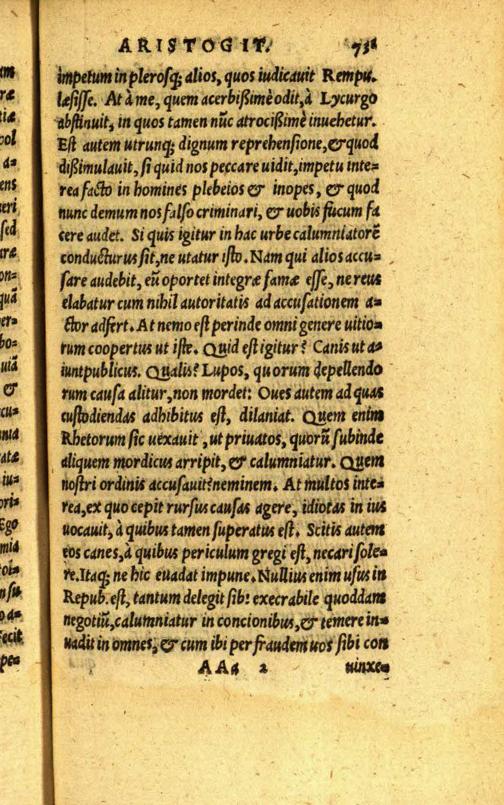 ARISTOGIT. 738
impetum in plerosq; alios, quos iudicauit Rempu.
læsisse. At à me, quem acerbißimè odit, à Lycurgo
abstinuit, in quos tamen nūc atrocißimè inuehetur.
Est autem utrunq; dignum reprehensione, & quod
dißimulauit, si quid nos peccare uidit, impetu inte=
rea facto in homines plebeios & inopes, & quod
nunc demum nos falso criminari, & uobis fucum fa
cere audet. Si quis igitur in hac urbe calumniatorē
conducturus sit, ne utatur isto. Nam qui alios accu=
sare audebit, eū oportet integræ famæ esse, ne reus
elabatur cum nihil autoritatis ad accusationem a=
ctor adfert. At nemo est perinde omni genere uitio=
rum coopertus ut iste. Quid est igitur? Canis ut a=
iunt publicus. Qualis? Lupos, quorum depellendo
rum causa alitur, non mordet: Oues autem ad quas
custodiendas adhibitus est, dilaniat. Quem enim
Rhetorum sic uexauit, ut priuatos, quorū subinde
aliquem mordicus arripit, & calumniatur. Quem
nostri ordinis accusauit? neminem. At multos inte=
rea, ex quo cepit rursus causas agere, idiotas in ius
uocauit, à quibus tamen superatus est. Scitis autem
eos canes, à quibus periculum gregi est, necari sole=
re. Itaq; ne hic euadat impune. Nullius enim usus in
Repub. est, tantum delegit sibi execrabile quoddam
negotiū, calumniatur in concionibus, & temere in=
uadit in omnes, & cum ibi per fraudem uos sibi con
AAa 2 uinxe=
ræ
tiæ
col
a=
ens
sed
on=
quā
er=
bo=
uiā
&
cu=
atæ
iu=
ori=
Ego
mia
fecit